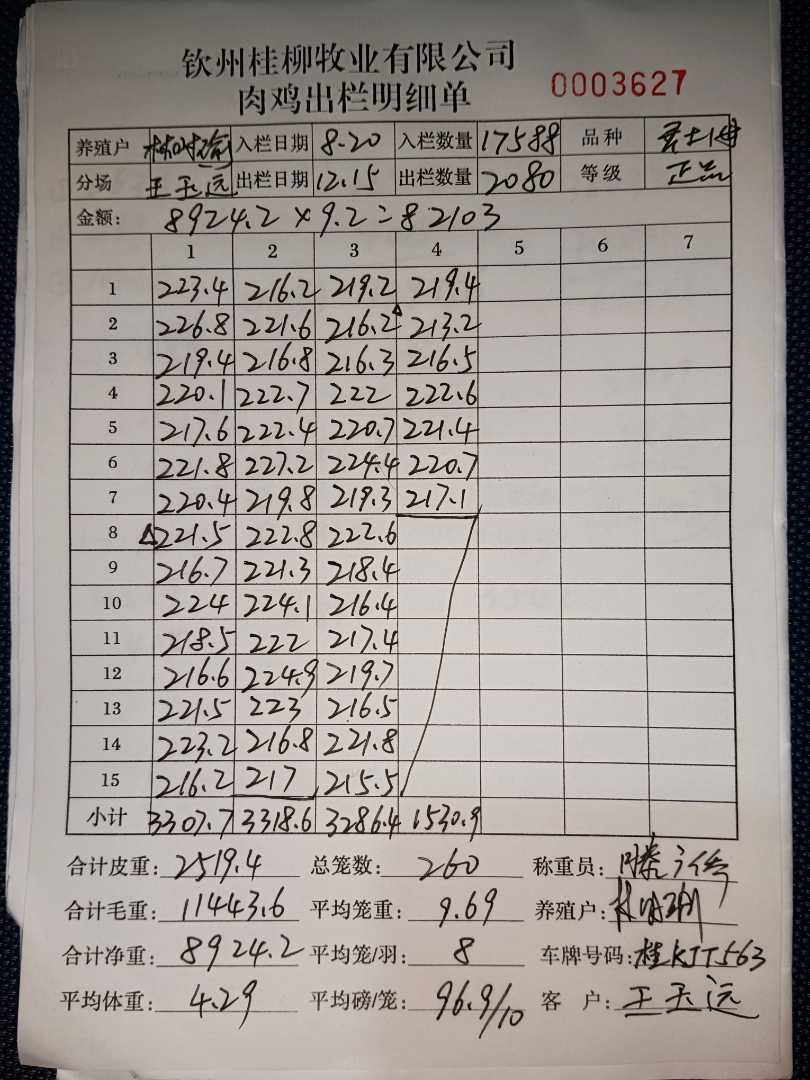 钦州桂柳牧业有限公司
肉鸡出栏明细单 0003627
养殖户 入栏日期 8.20 入栏数量 17588 品种
分场 王玉远 出栏日期 12.15 出栏数量 2080 等级 正品
金额: 8924.2×9.2=82103
1 2 3 4 5 6 7
1 223.4 216.2 219.2 219.4
2 226.8 221.6 216.2 213.2
3 219.4 216.8 216.3 216.5
4 220.1 222.7 222 222.6
5 217.6 222.4 220.7 221.4
6 221.8 227.2 224.4 220.7
7 220.4 219.8 219.3 217.1
8 221.5 222.8 222.6
9 216.7 221.3 218.4
10 224 224.1 216.4
11 218.5 222 217.4
12 216.6 224.9 219.7
13 221.5 223 216.5
14 223.2 216.8 221.8
15 216.2 217 215.5
小计 3307.7 3318.6 3286.4 1530.9
合计皮重: 2519.4 总笼数: 260 称重员:
合计毛重: 11443.6 平均笼重: 9.69 养殖户:
合计净重: 8924.2 平均笼/羽: 8 车牌号码: 桂KJT563
平均体重: 4.29 平均磅/笼: 96.9/10 客 户: 王玉远